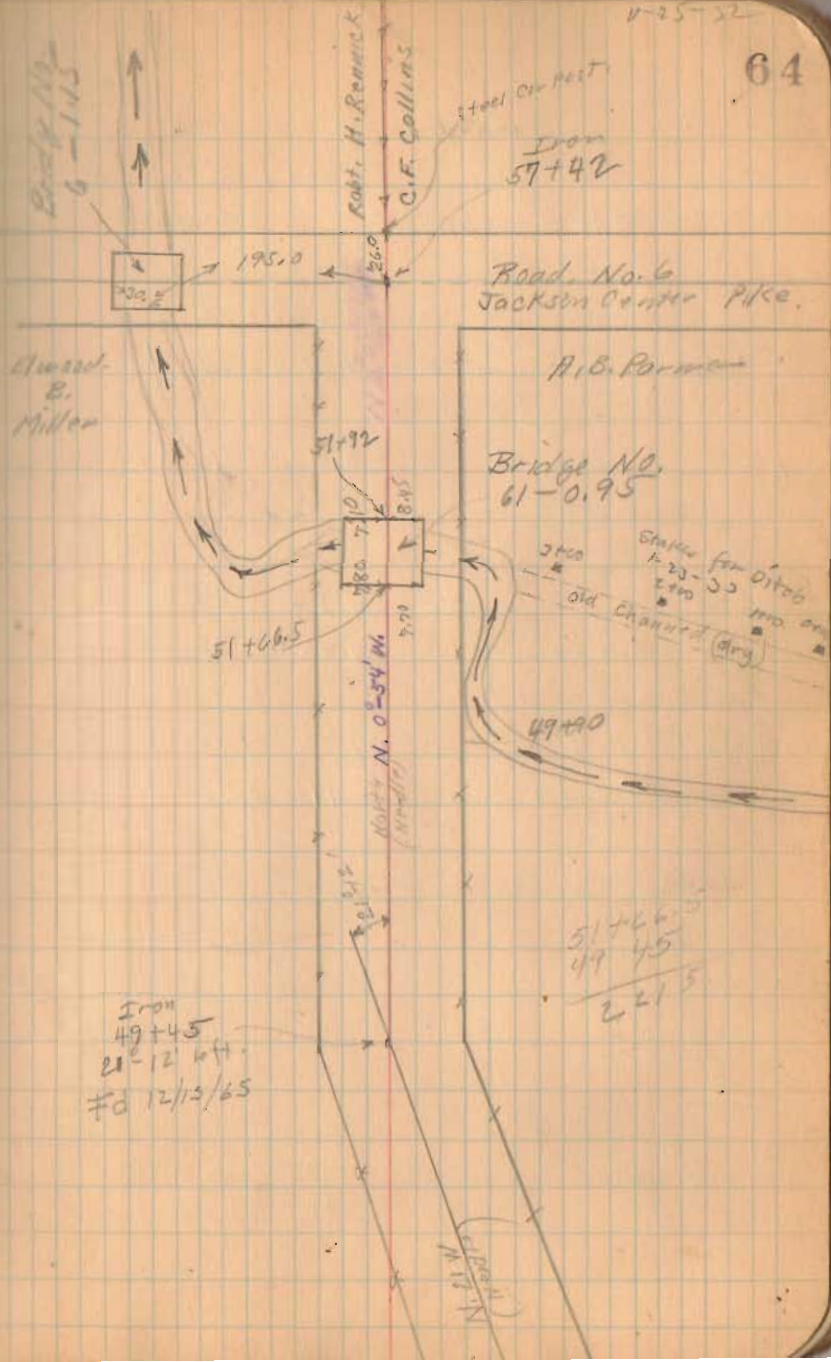 11-25-32
64
Bridge No.
6-145
Robt. H. Rennick
C.F. Collins
Steel Cor Post.
Iron
57+42
26.0
195.0
Road. No. 6
Jackson Center Pike.
Elwood
B.
Miller
A.B. Parmer
51+92
Bridge No.
61-0.95
7.10
8.45
7.80
7.70
51+66.5
Stakes for Ditch
1-23-33
3+00
2+00
1+00
Old Channel (dry)
N. 0°-54' W.
North
(Needle)
49+90
21°12'
51+66.5
49 45
2 21 5
Iron
49+45
21°-12' Left.
Fd 12/15/65
N. 21 W
(Needle)